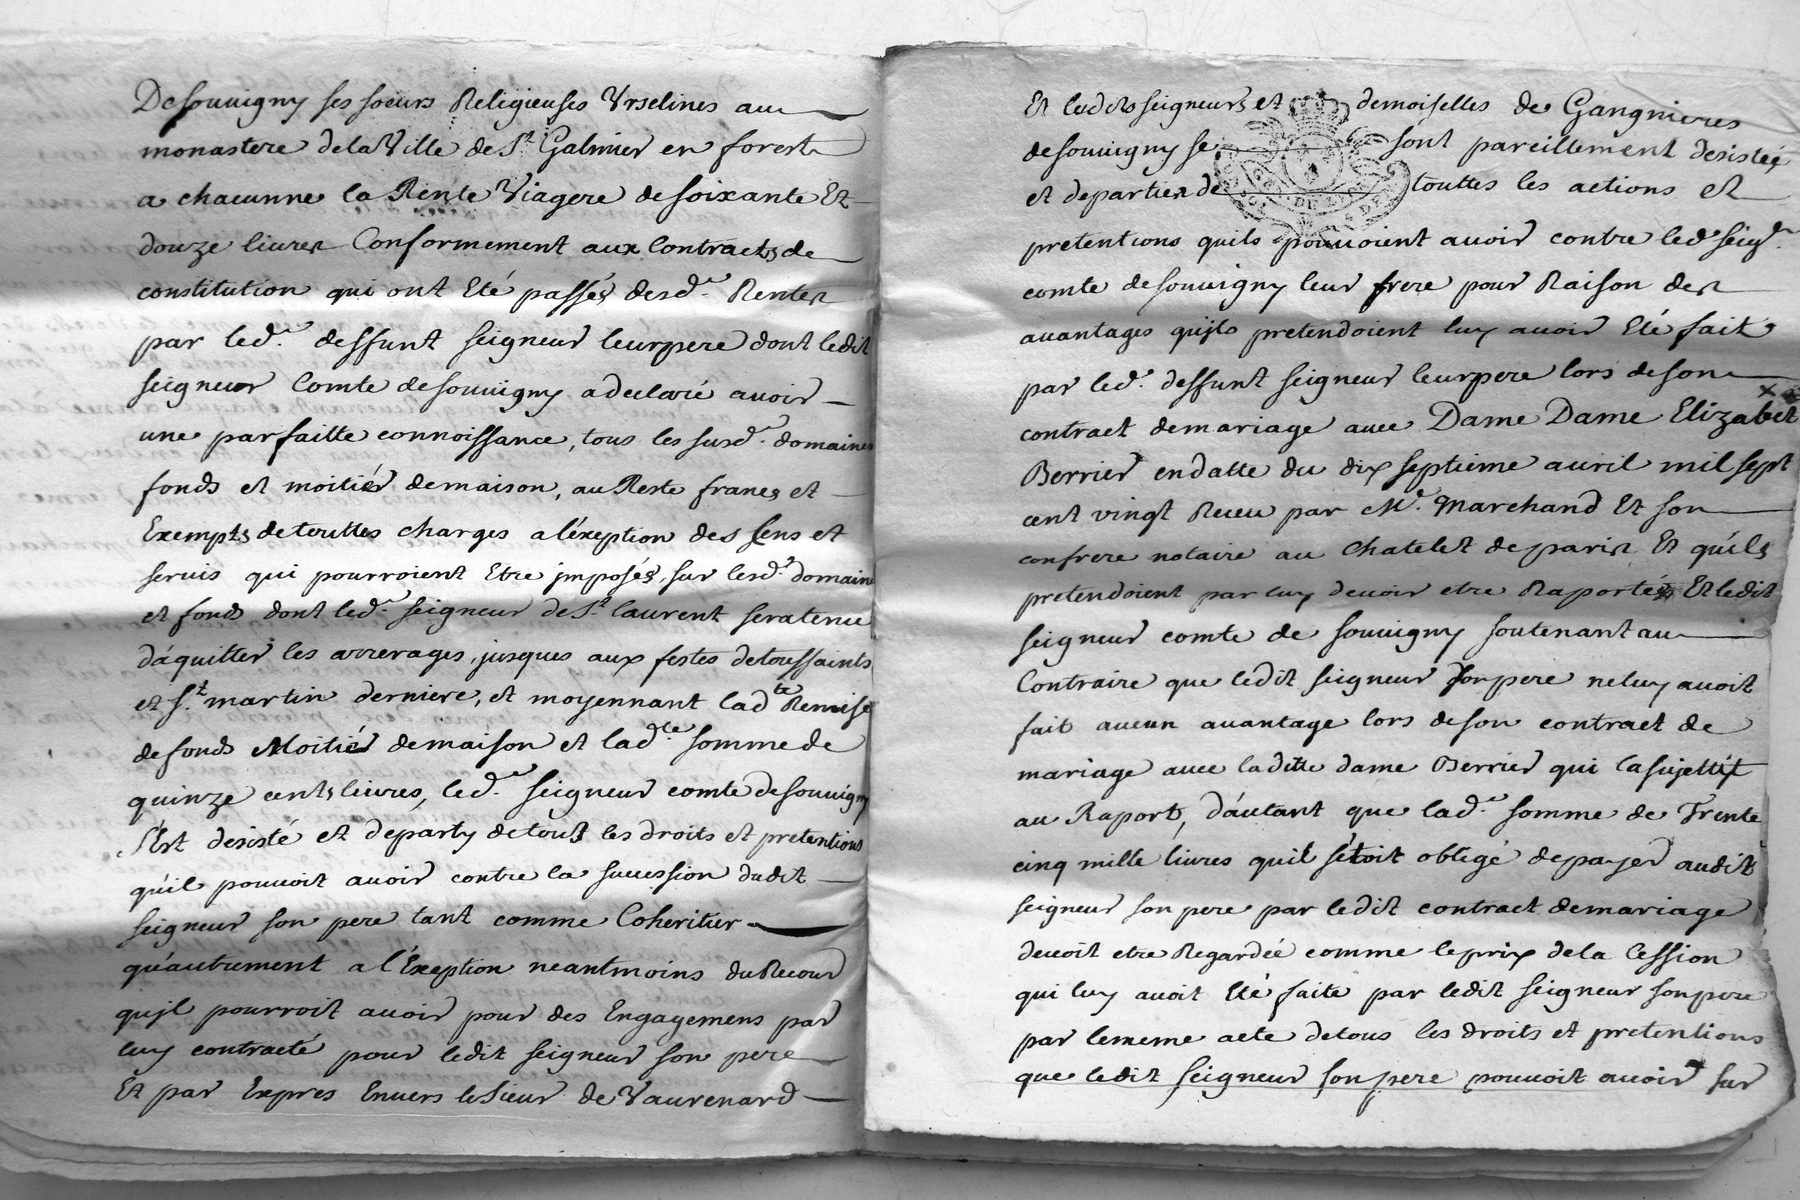 Desouuigny ses soeurs Religieuses Vrselines au
monastere dela Ville de St. Galmier en forest
a chacunne la Rente Viagere de soixante Et
douze livres Conformement aux Contracts de
constitution qui ont Eté passés desd. Rentes
par led. deffunt seigneur leur pere dont ledit
seigneur Comte desouuigny a declaré avoir
une parfaitte connoissance, tous les susd. domaines
fonds et moitiés de maison, au Reste francs et
Exempts de touttes charges a l'éxeption des Cens et
servis qui pourroient Etre jmposés, sur lesd. domaine
et fonds dont led. seigneur de St. laurent sera tenu
d'aquitter les arrerages, jusques aux festes detoussaints
et St. martin derniere, et moyennant lad.te Remise
de fonds Moitiés demaison et lad.te somme de
quinze cents livres, led. seigneur comte desouuigny
s'Est desisté et departy de touts les droits et pretentions
qu'il pouvoit avoir contre la succession dudit
seigneur son pere tant comme Coheritier
qu'autrement a l'Exeption neantmoins du Recour
qujl pourroit avoir pour des Engagemens par
luy contracté pour ledit seigneur son pere
Et par Expres Envers le Sieur de Vaurenard
Et lesdits seigneurs et demoiselles de Gangnieres
desouuigny se sont pareillement desistés
et departies de touttes les actions et
pretentions quils pouvoient avoir contre led. seigr.
comte desouuigny leur frere pour Raison des
avantages qujls pretendoient luy avoir Eté fait
par led. deffunt seigneur leur pere lors de son
contract de mariage avec Dame Dame Elizabet
Berrier en datte du dix septieme avril mil sept
cent vingt Receu par Me. Marchand Et son
confrere notaire au Chatelet de paris Et qu'ils
pretendoient par luy devoir etre Raportés Et ledit
seigneur comte de souuigny soutenant au
Contraire que ledit seigneur son pere ne luy avoit
fait aucun avantage lors de son contract de
mariage avec laditte dame Berrier qui l'asujettit
au Raport, d'autant que lad. somme de Trente
cinq mille livres quil s'étoit obligé de payer audit
seigneur son pere par ledit contract de mariage
devoit etre Regardée comme le prix dela Cession
qui luy avoit Eté faite par ledit seigneur son pere
par le meme acte de tous les droits et pretentions
que ledit seigneur son pere pouvoit avoir sur